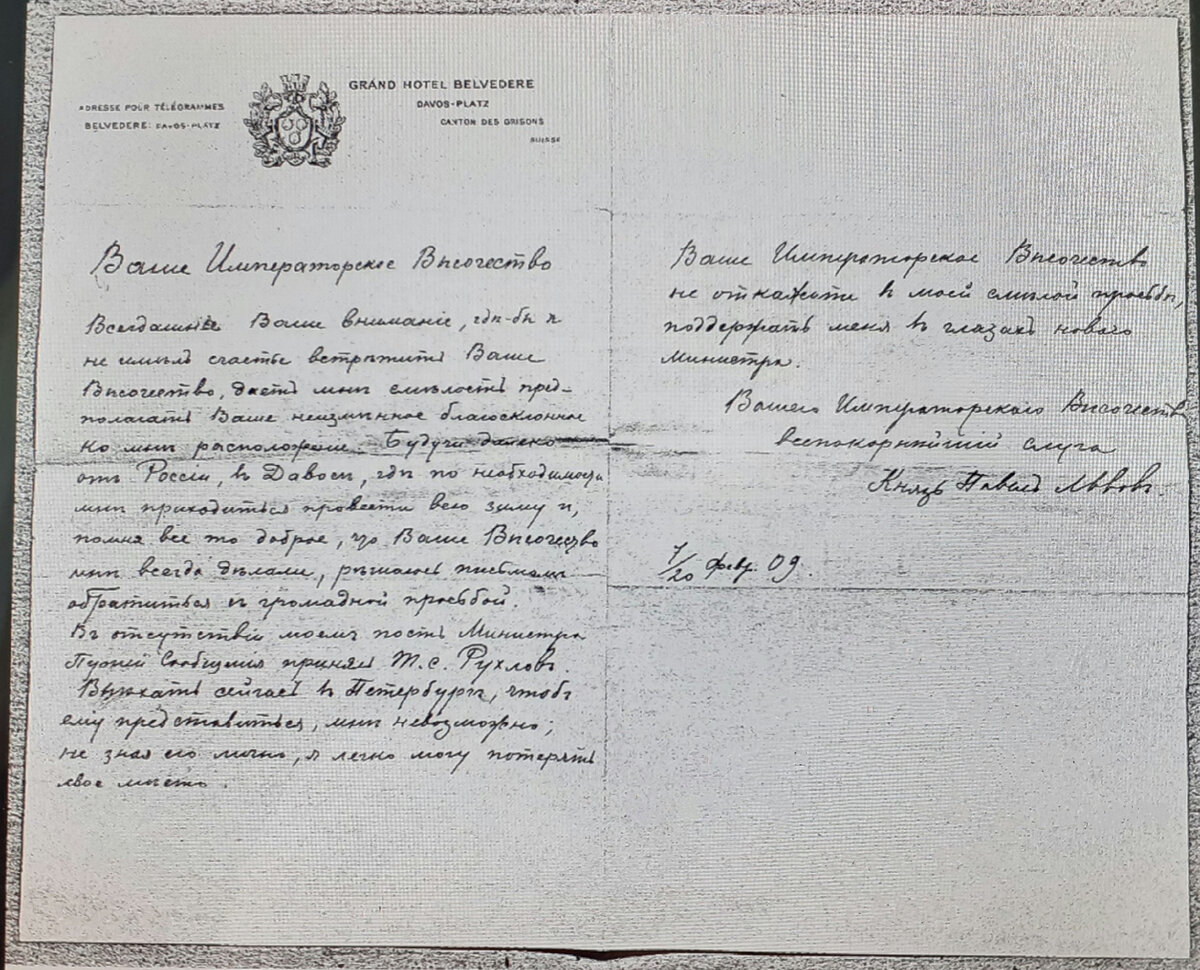 ADRESSE POUR TÉLÉGRAMMES
BELVEDERE: DAVOS-PLATZ
GRAND HOTEL BELVEDERE
DAVOS-PLATZ
CANTON DES GRISONS
SUISSE
Ваше Императорское Высочество
Всегдашнѣе Ваше вниманіе, гдѣ-бы я
не имѣлъ счастье встрѣтить Ваше
Высочество, даетъ мнѣ смѣлость пред-
полагать Ваше неизмѣнное благосклонное
ко мнѣ расположеніе. Будучи далеко
отъ Россіи, въ Давосѣ, гдѣ по необходимости
мнѣ приходиться провести всю зиму и,
помня все то доброе, что Ваше Высочество
мнѣ всегда дѣлали, рѣшаюсь письмомъ
обратиться съ громадной просьбой.
Въ отсутствіи моемъ постъ Министра
Путей Сообщенія принялъ Т.С. Рухловъ.
Выѣхать сейчасъ въ Петербургъ, чтобъ
ему представиться, мнѣ невозможно;
не зная его лично, я легко могу потерять
свое мѣсто.
Ваше Императорское Высочество
не откажите въ моей смѣлой просьбѣ,
поддержать меня въ глазахъ новаго
министра.
Вашего Императорскаго Высочества
всепокорнѣйшій слуга
Князь Павелъ Львовъ.
7/20 февр. 09.